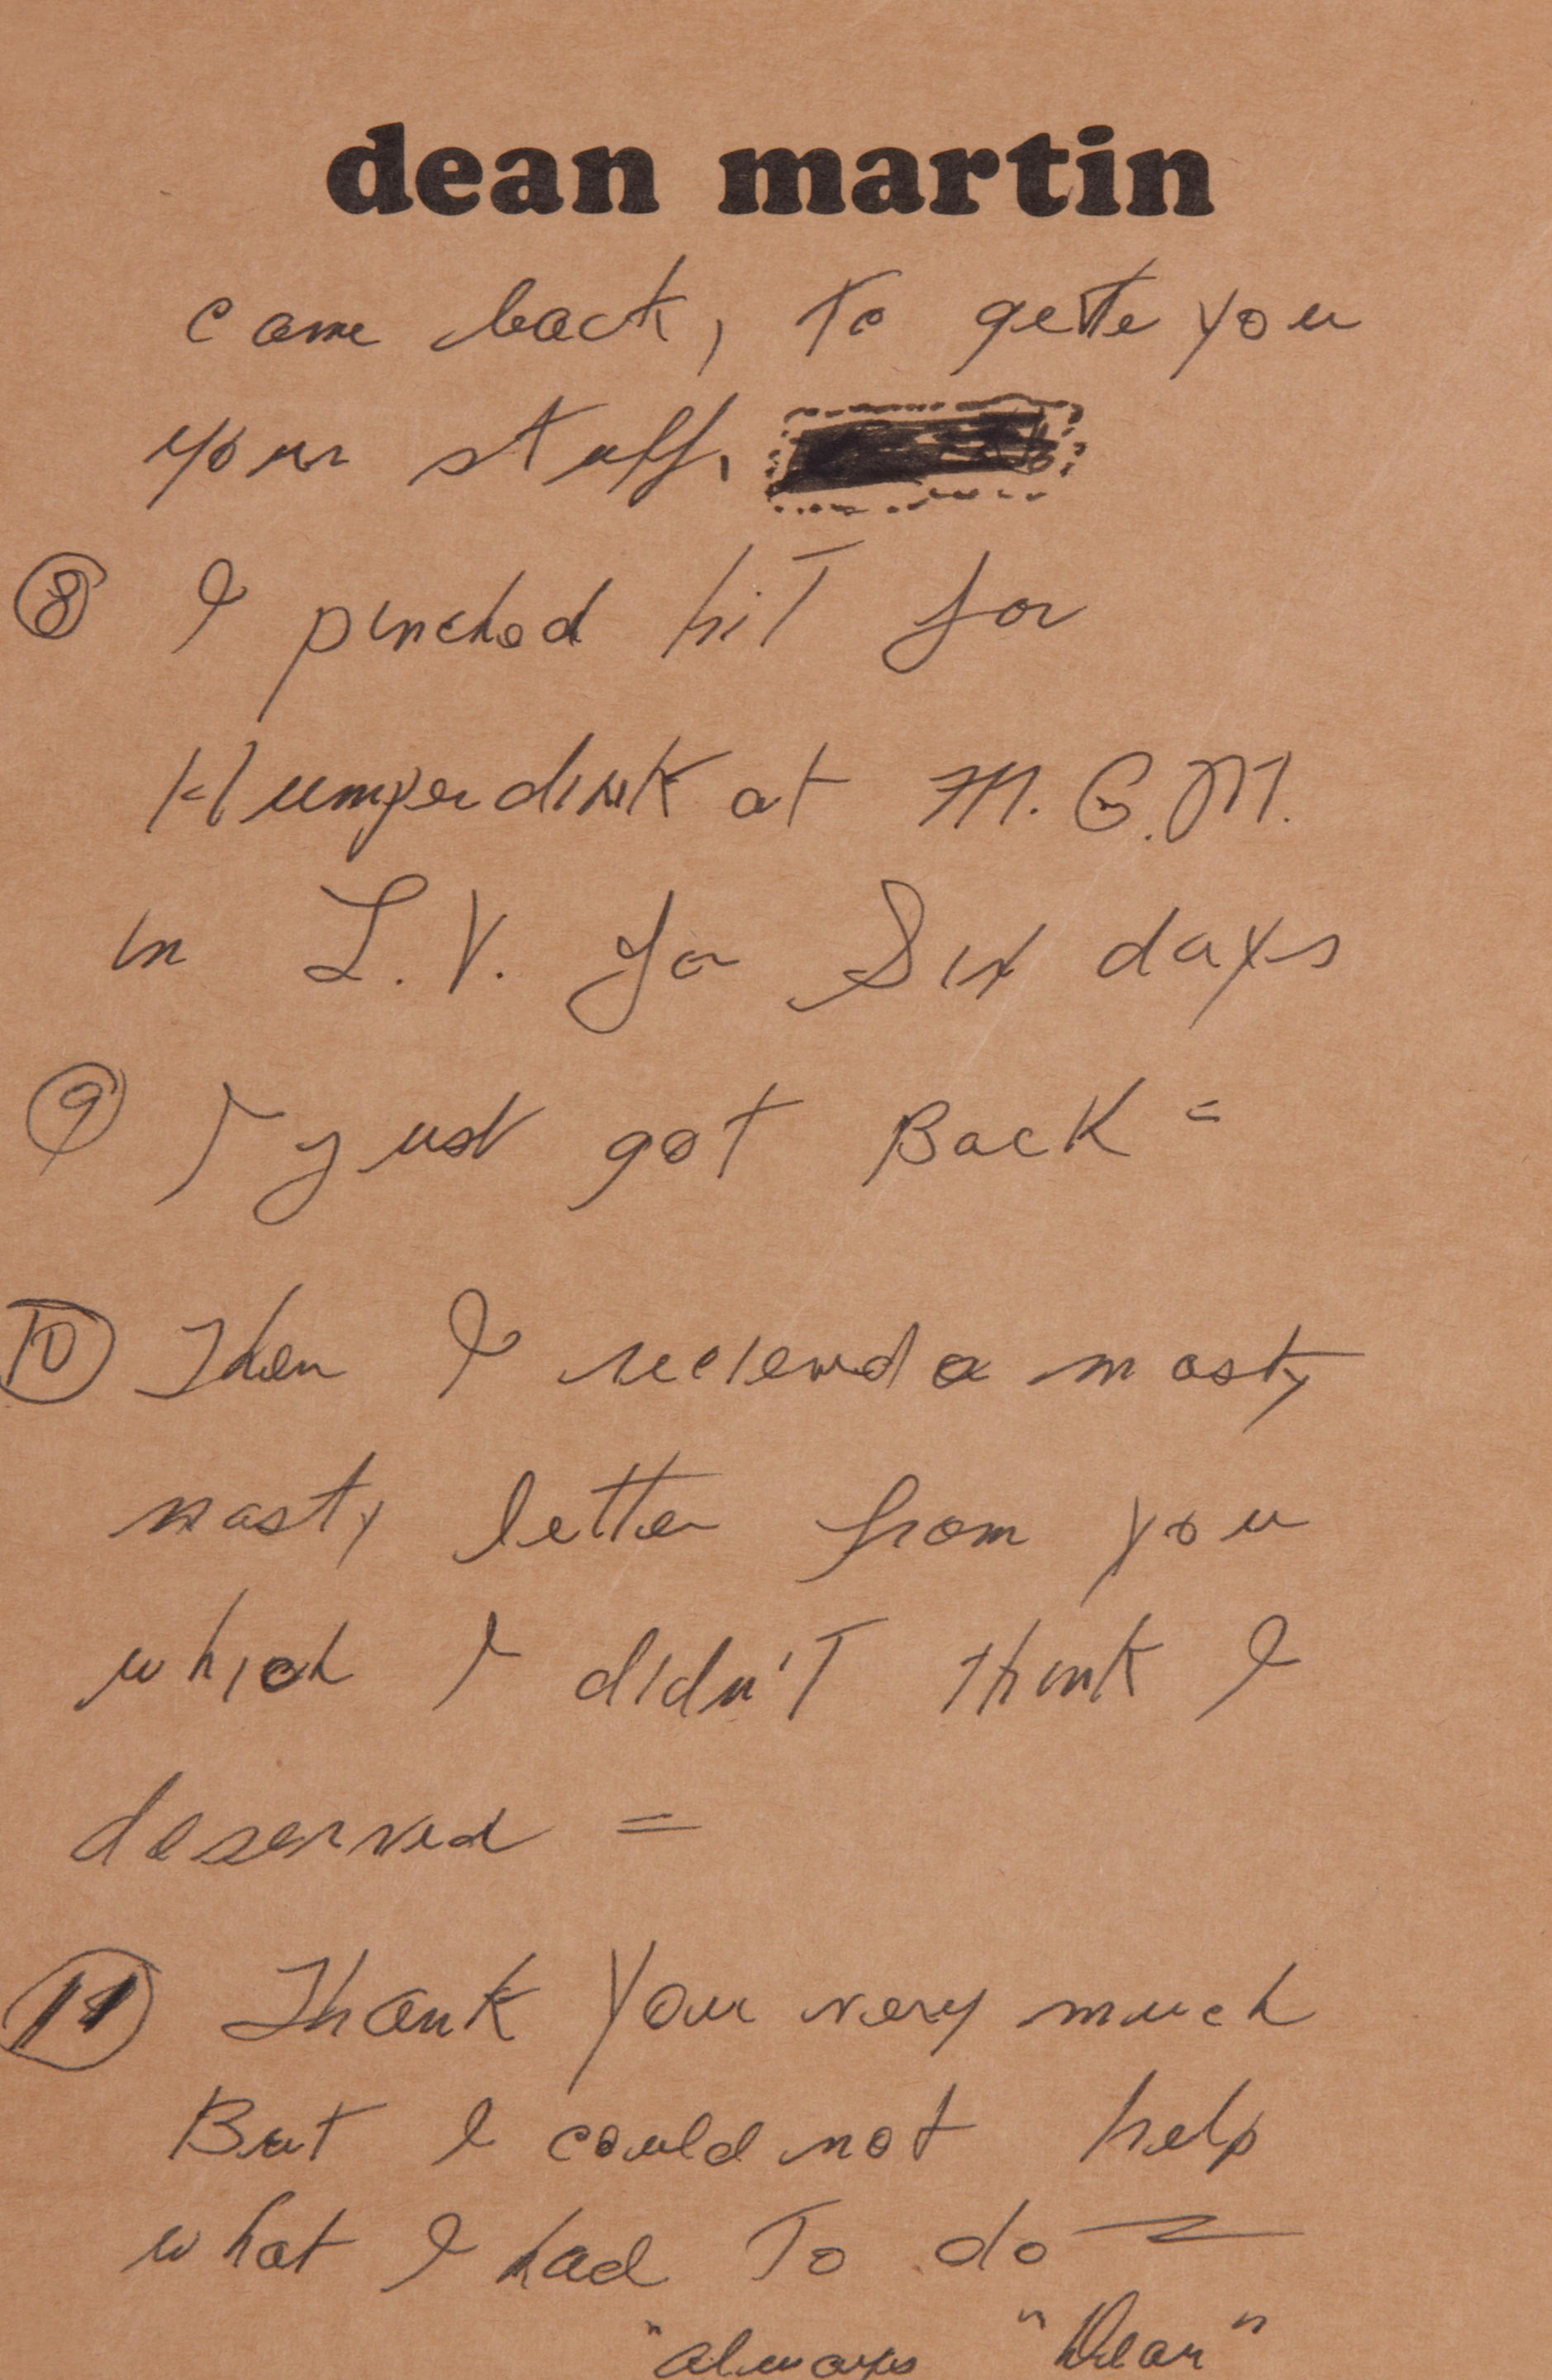 dean martin
came back, To gette you
your stuff,
⑧ I pinched hiT for
Humperdink at M.G.M.
in L.V. for Six days
⑨ I just got Back =
⑩ Then I recieved a nasty
nasty letter from you
which I didn'T think I
deserved =
⑪ Thank You very much
But I could not help
what I had To do
"always "Dean"